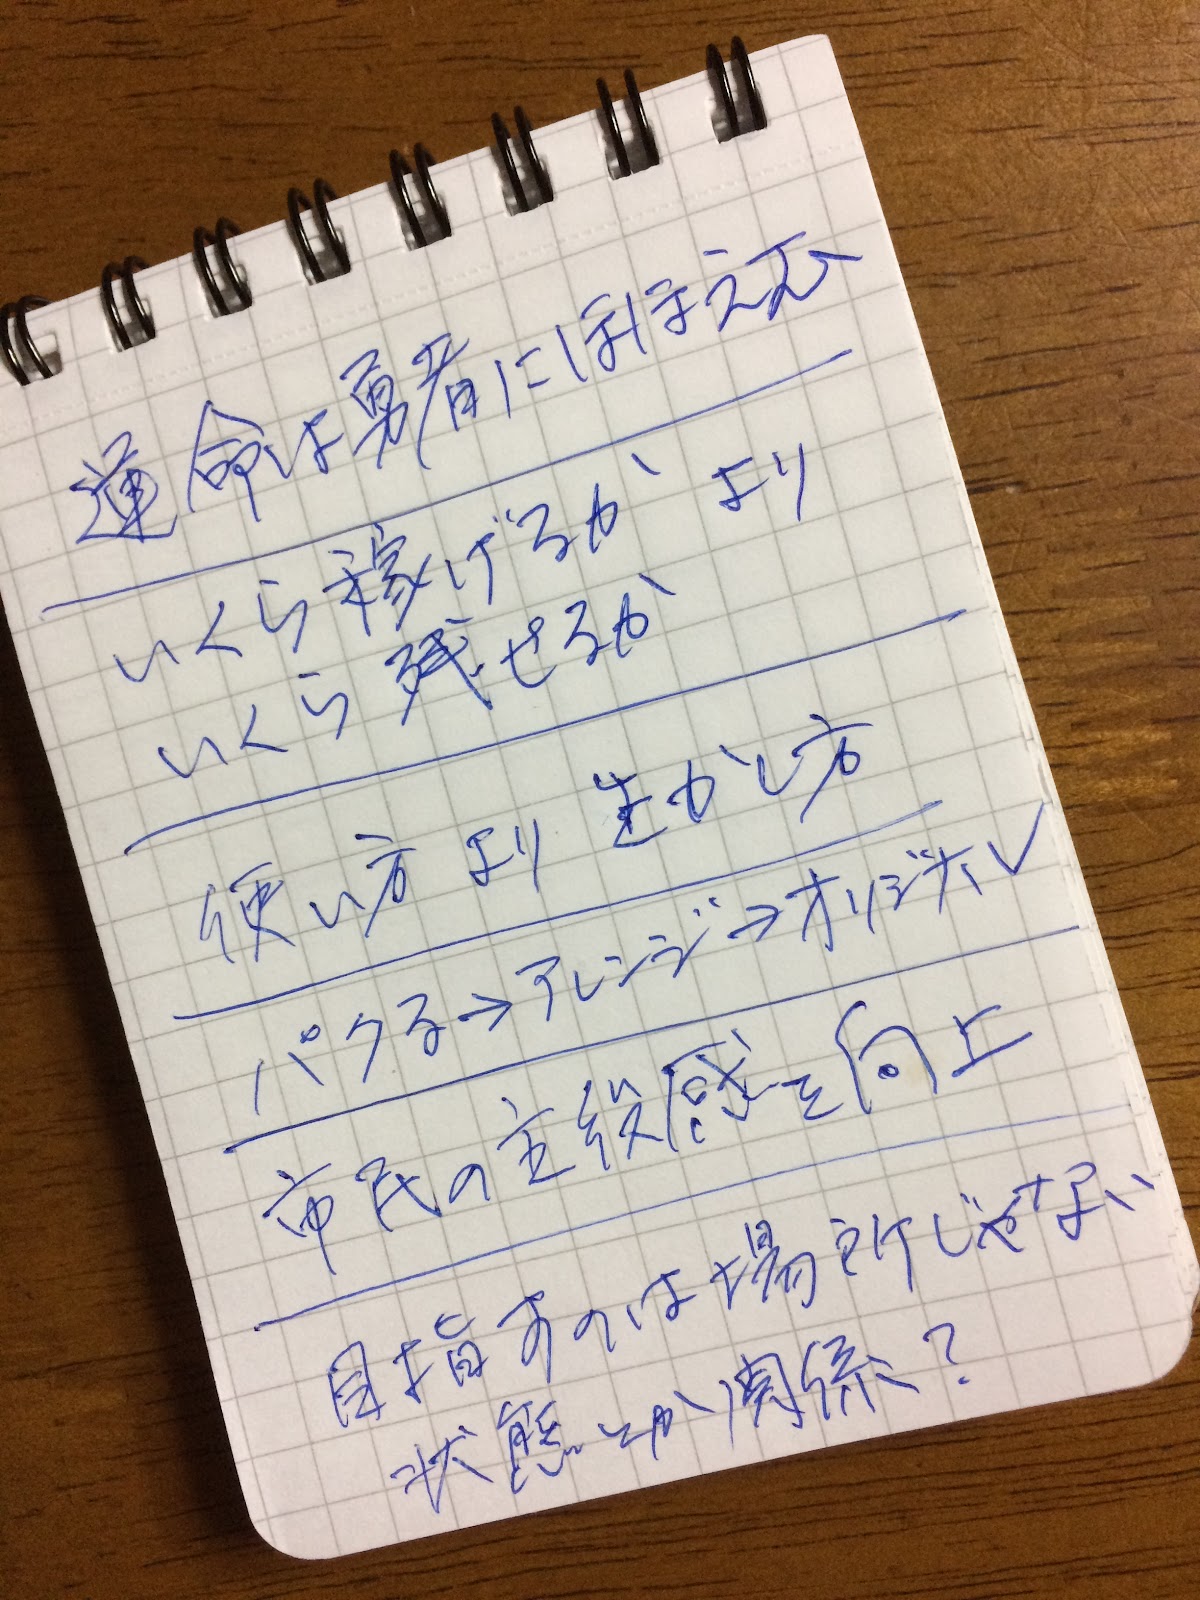 運命は勇者にほほえむ
いくら稼げるか より
いくら残せるか
使い方 より 生かし方
パクる→アレンジ→オリジナル
市民の主役感を向上
目指すのは場所じゃない
状態とか関係?